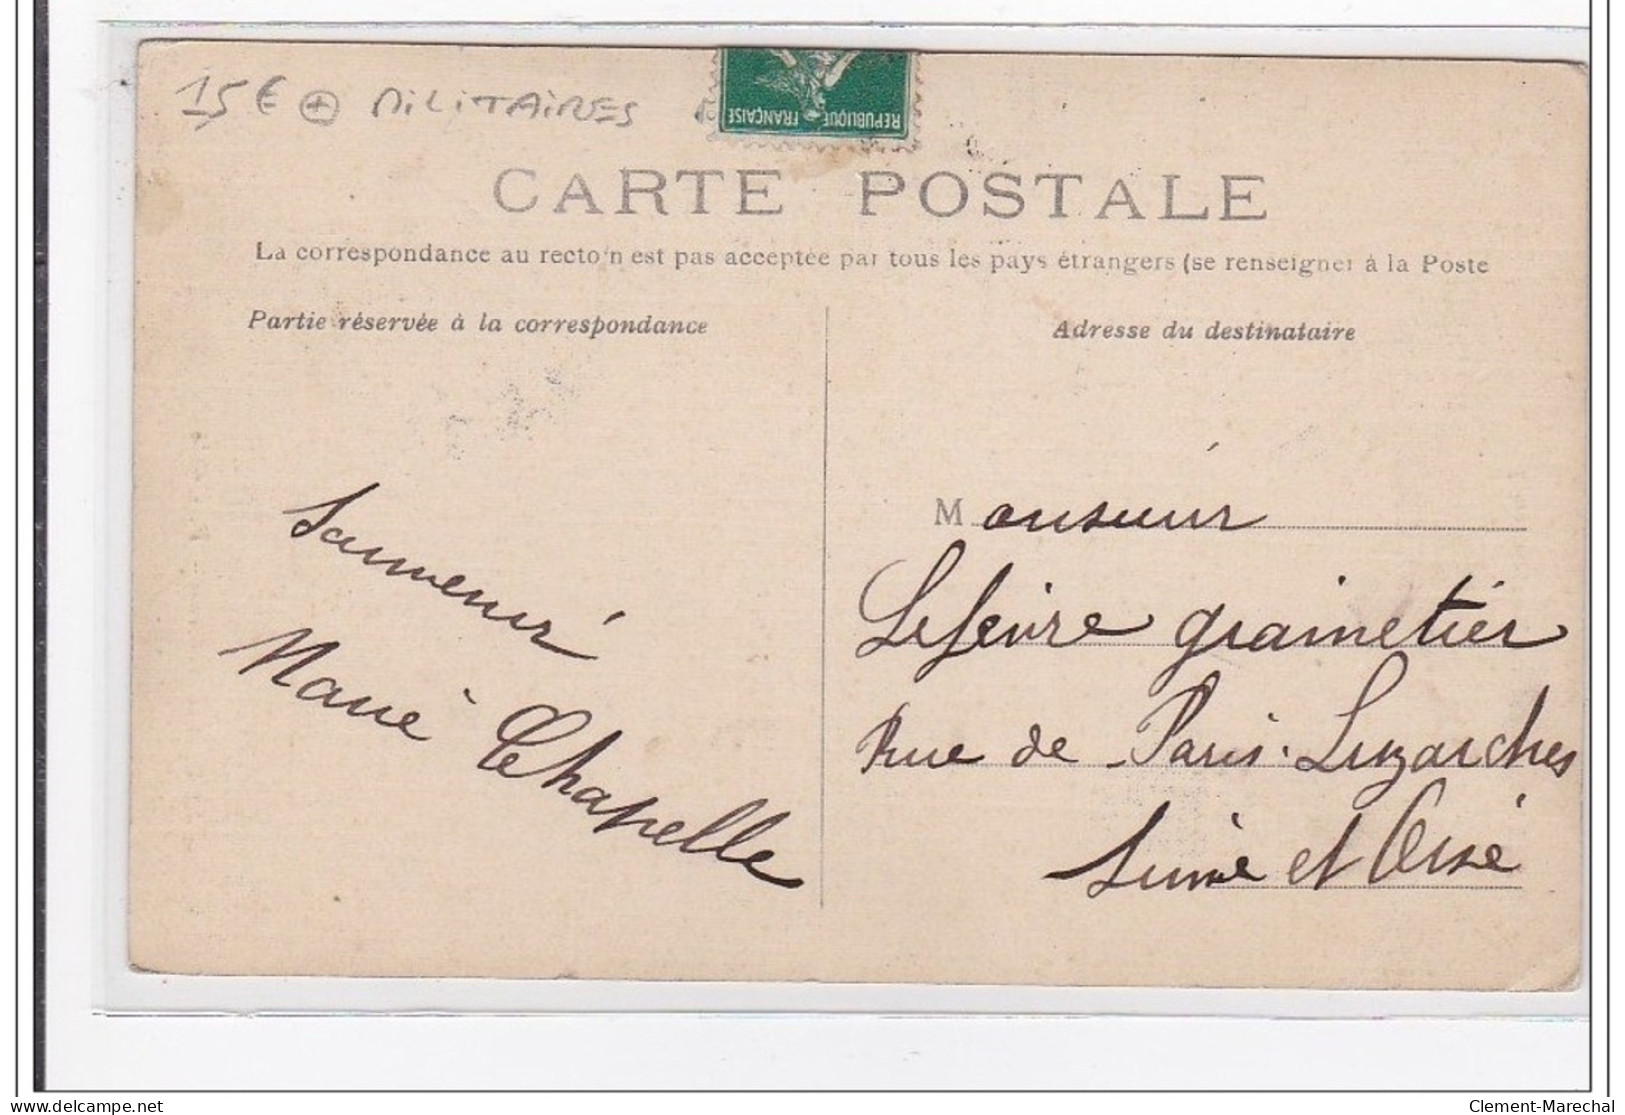 15€ + MILITAIRES
REPUBLIQUE FRANÇAISE
CARTE POSTALE
La correspondance au recto n'est pas acceptée par tous les pays étrangers (se renseigner à la Poste
Partie réservée à la correspondance
Adresse du destinataire
Souvenir
Marie Chapelle
Monsieur
Lefeivre grainetier
Rue de Paris. Luzarches
Seine et Oise
delcampe.net
Clement-Marechal